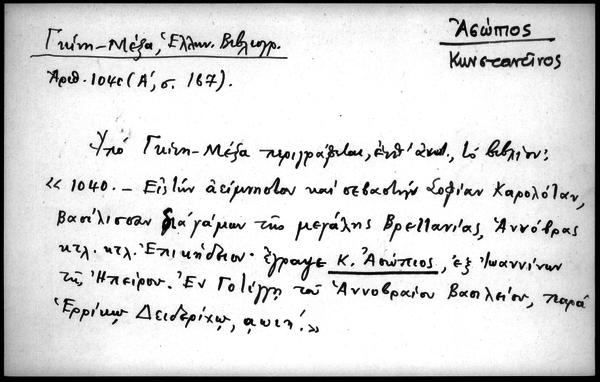 Γκίνη-Μέξα, Ἑλλην. Βιβλιογρ.
Ἀσώπιος
Κωνσταντῖνος
Ἀριθ. 1040 (Α', σ. 167).
Ὑπό Γκίνη-Μέξα περιγράφεται, ἐνθ' ἀνωτ., τό βιβλίον:
« 1040. – Εἰς τήν ἀείμνηστον καί σεβαστήν Σοφίαν Καρολόταν,
βασίλισσαν διά γάμων τῆς μεγάλης Βρεττανίας, Ἀννόβρας
κτλ. κτλ. Ἐπικήδειον· ἔγραψε Κ. Ἀσώπιος, ἐξ Ἰωαννίνων
τῆς Ἠπείρου. Ἐν Γοτίγγῃ τοῦ Ἀννοβραίου Βασιλείου, παρά
Ἑρρίκῳ Δειδερίχῳ, αωιη'.»